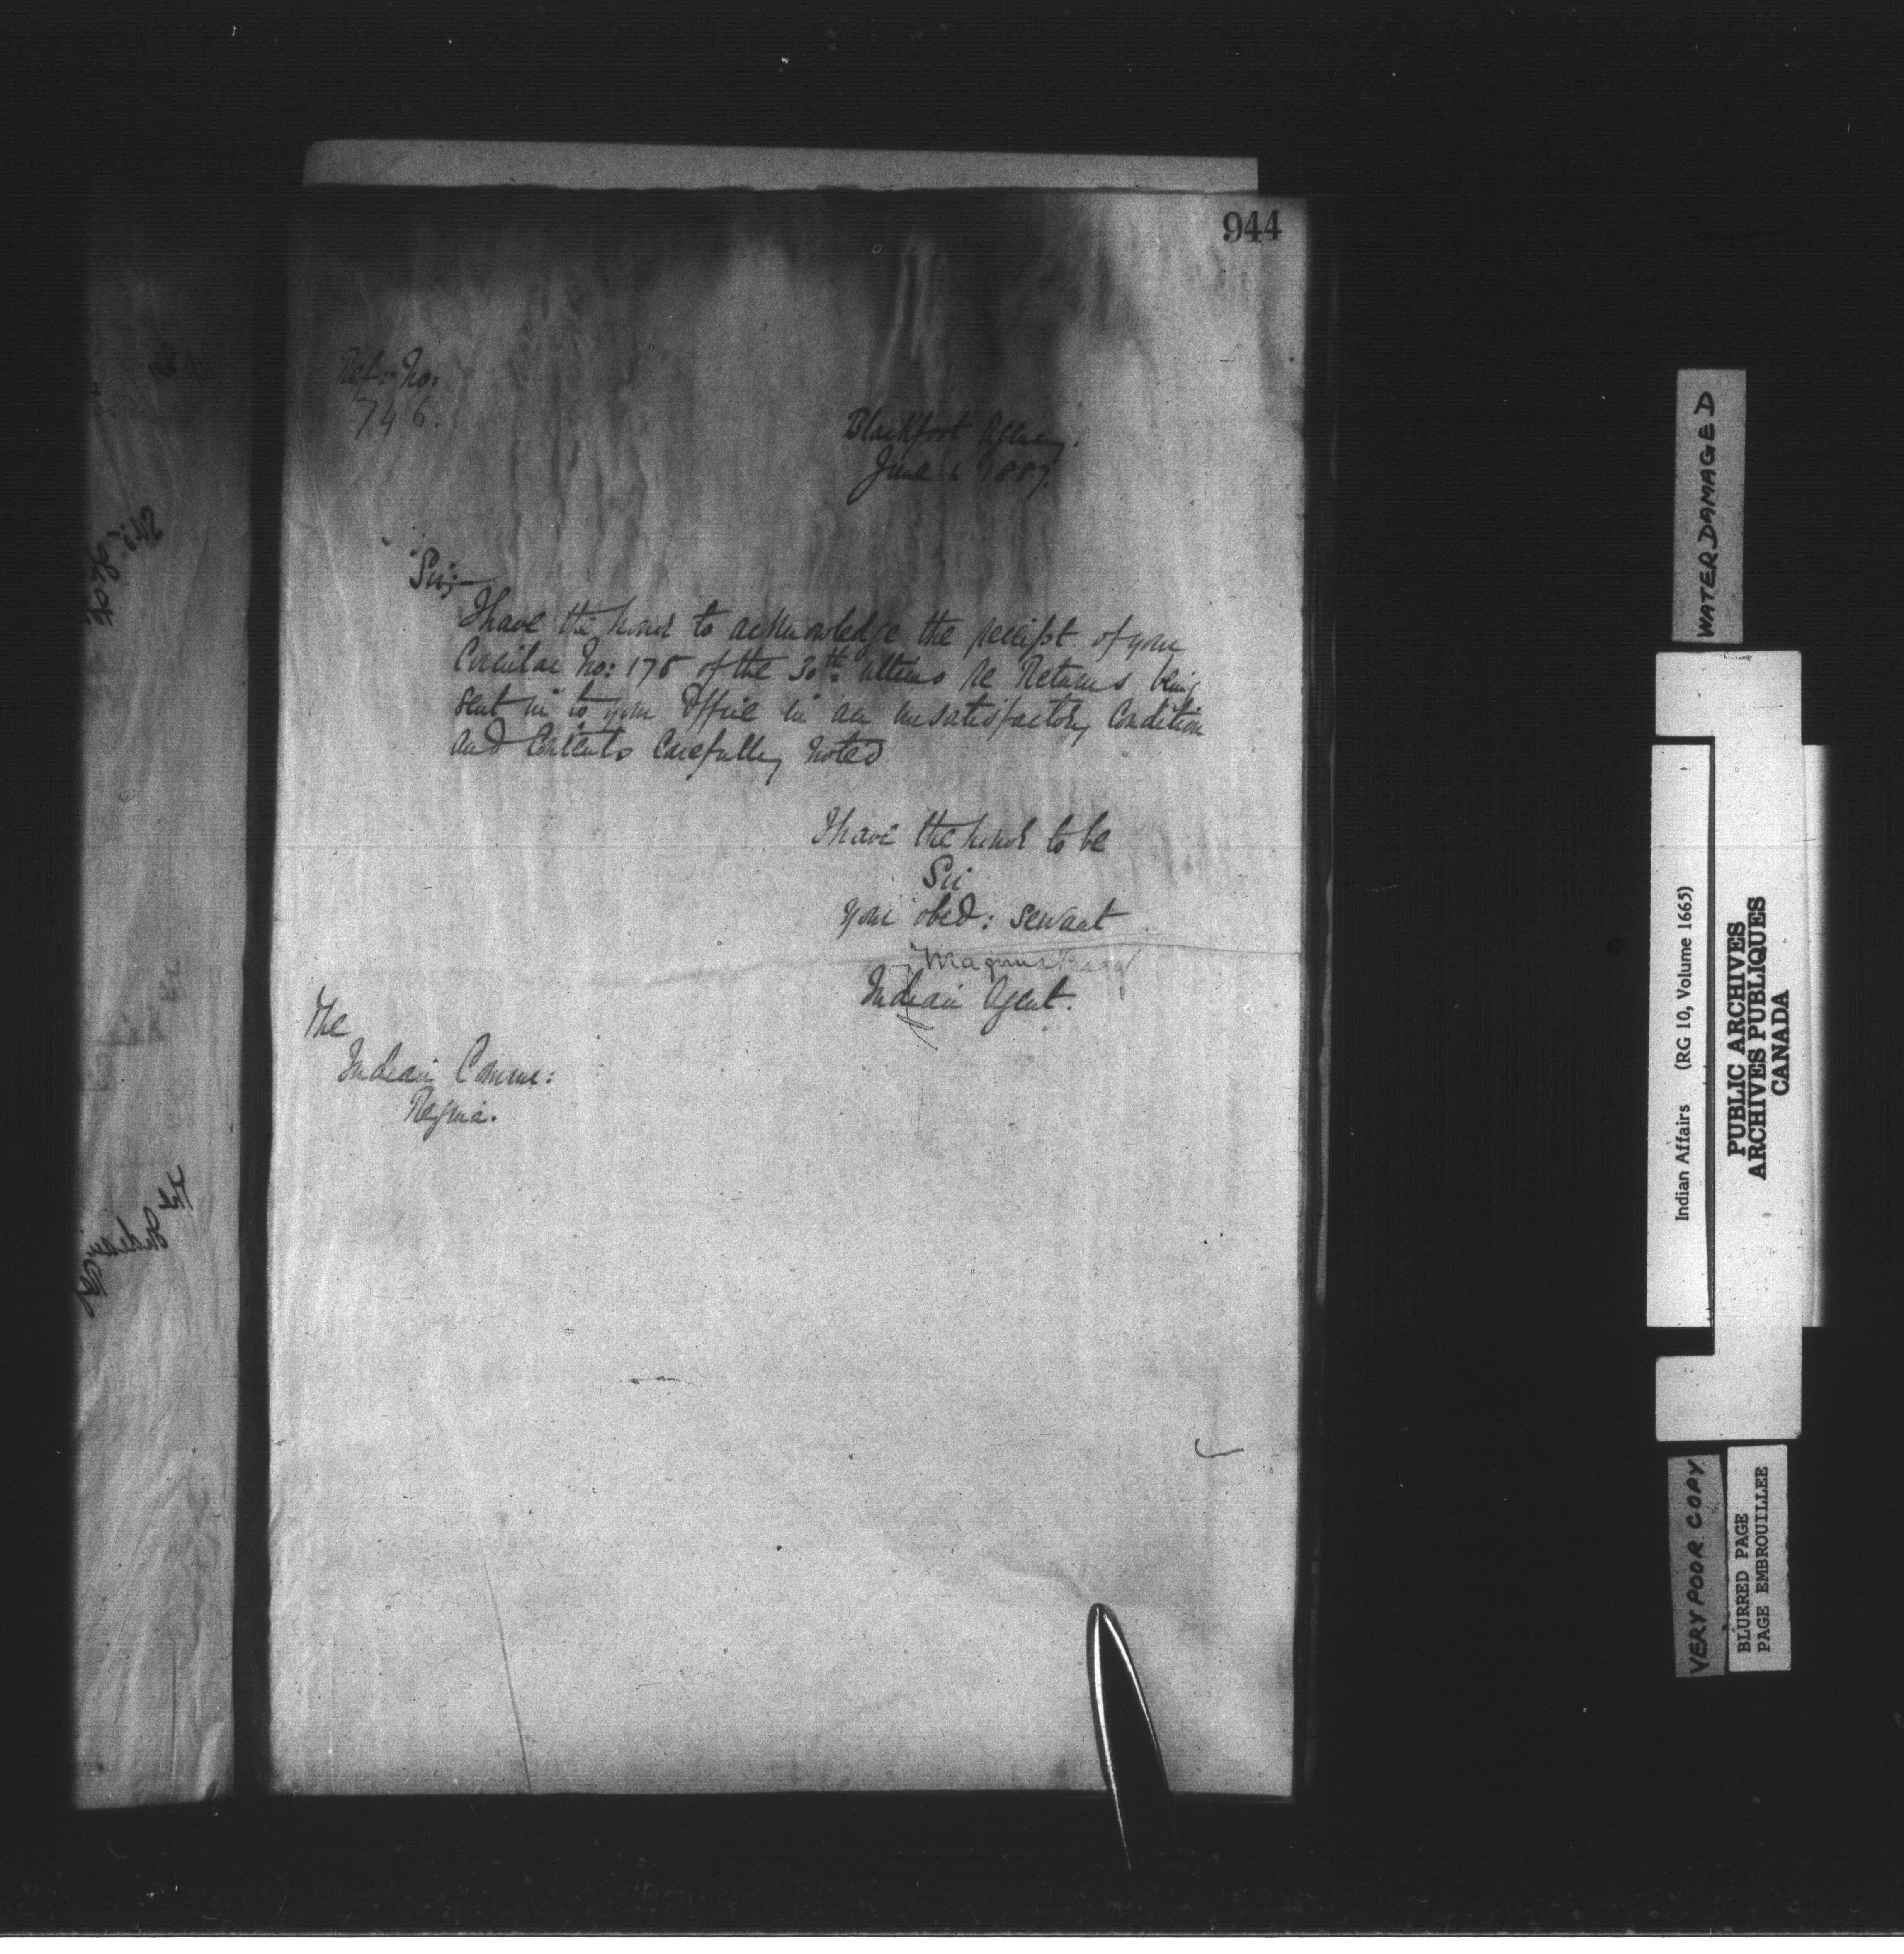 944
Ref: No:
746.
Blackfoot Agency.
June 6 1887.
Sir;
I have the honor to acknowledge the receipt of your
Circular No: 175 of the 30th ultimo re Returns being
sent in to your Office in an unsatisfactory Condition
and Contents Carefully noted
I have the honor to be
Sir
your obed: servant
Magnus Begg
Indian Agent.
The
Indian Comm:
Regina.
WATER DAMAGED
Indian Affairs (RG 10, Volume 1665)
PUBLIC ARCHIVES
ARCHIVES PUBLIQUES
CANADA
VERY POOR COPY
BLURRED PAGE
PAGE EMBROUILLEE